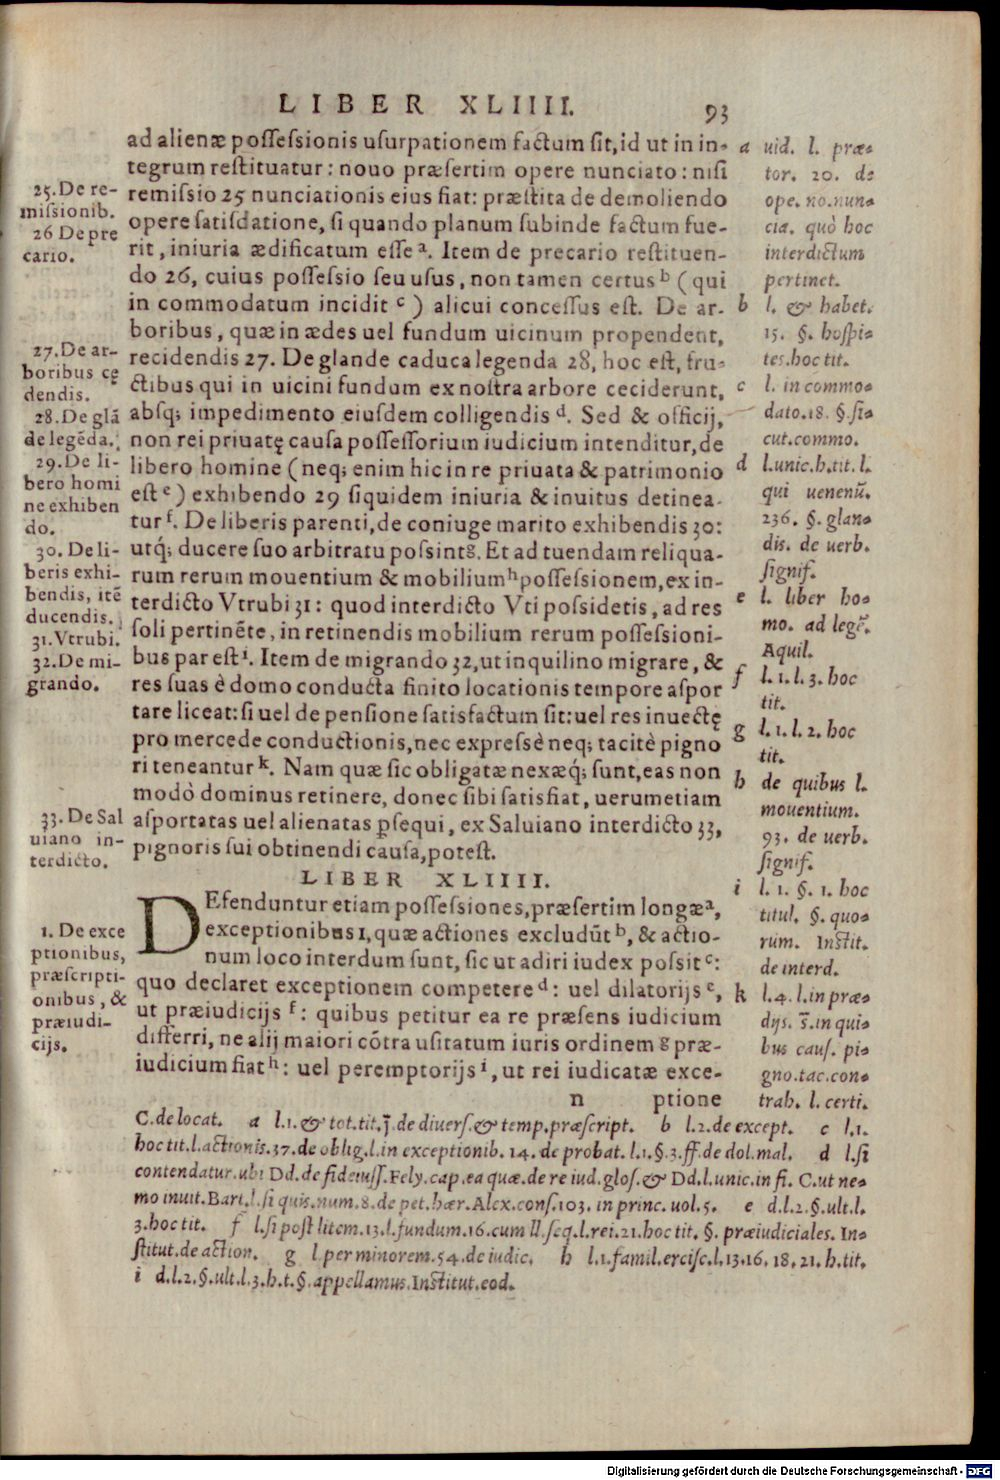 LIBER XLIIII. 93
ad alienæ possessionis usurpationem factum sit, id ut in in-
tegrum restituatur: nouo præsertim opere nunciato: nisi
remissio 25 nunciationis eius fiat: præstita de demoliendo
opere satisdatione, si quando planum subinde factum fue-
rit, iniuria ædificatum esse a. Item de precario restituen-
do 26, cuius possessio seu usus, non tamen certus b (qui
in commodatum incidit c) alicui concessus est. De ar-
boribus, quæ in ædes uel fundum uicinum propendent,
recidendis 27. De glande caduca legenda 28, hoc est, fru-
ctibus qui in uicini fundum ex nostra arbore ceciderunt,
absq; impedimento eiusdem colligendis d. Sed & officij,
non rei priuatę causa possessorium iudicium intenditur, de
libero homine (neq; enim hic in re priuata & patrimonio
est e) exhibendo 29 siquidem iniuria & inuitus detinea-
tur f. De liberis parenti, de coniuge marito exhibendis 30:
utq́; ducere suo arbitratu possint g. Et ad tuendam reliqua-
rum rerum mouentium & mobilium h possessionem, ex in-
terdicto Vtrubi 31: quod interdicto Vti possidetis, ad res
soli pertinẽte, in retinendis mobilium rerum possessioni-
bus par est i. Item de migrando 32, ut inquilino migrare, &
res suas è domo conducta finito locationis tempore aspor
tare liceat: si uel de pensione satisfactum sit: uel res inuectę
pro mercede conductionis, nec expressè neq; tacitè pigno
ri teneantur k. Nam quæ sic obligatæ nexæq́; sunt, eas non
modò dominus retinere, donec sibi satisfiat, uerumetiam
asportatas uel alienatas psequi, ex Saluiano interdicto 33,
pignoris sui obtinendi causa, potest.
LIBER XLIIII.
DEfenduntur etiam possessiones, præsertim longæ a,
exceptionibus 1, quæ actiones excludũt b, & actio-
num loco interdum sunt, sic ut adiri iudex possit c:
quo declaret exceptionem competere d: uel dilatorijs e,
ut præiudicijs f: quibus petitur ea re præsens iudicium
differri, ne alij maiori cõtra usitatum iuris ordinem g præ-
iudicium fiat h: uel peremptorijs i, ut rei iudicatæ exce-
n ptione
25. De re-
missionib.
26 De pre
cario.
27. De ar-
boribus cę
dendis.
28. De glã
de legẽda.
29. De li-
bero homi
ne exhiben
do.
30. De li-
beris exhi-
bendis, itẽ
ducendis.
31. Vtrubi.
32. De mi-
grando.
33. De Sal
uiano in-
terdicto.
1. De exce
ptionibus,
præscripti-
onibus, &
præiudi-
cijs.
a uid. l. præ-
tor. 20. de
ope. no. nun-
cia. quò hoc
interdictum
pertinet.
b l. & habet.
15. §. hospi-
tes. hoc tit.
c l. in commo-
dato. 18. §. si-
cut. commo.
d l. unic. h. tit. l.
qui uenenũ.
236. §. glan-
dis. de uerb.
signif.
e l. liber ho-
mo. ad legẽ.
Aquil.
f l. 1. l. 3. hoc
tit.
g l. 1. l. 2. hoc
tit.
h de quibus l.
mouentium.
93. de uerb.
signif.
i l. 1. §. 1. hoc
titul. §. quo-
rum. Instit.
de interd.
k l. 4. l. in præ-
dijs. s̃. in qui-
bus caus. pi-
gno. tac. con-
trah. l. certi.
C. de locat. a l. 1. & tot. tit. j̃. de diuers. & temp. præscript. b l. 2. de except. c l. 1.
hoc tit. l. actionis. 37. de oblig. l. in exceptionib. 14. de probat. l. 1. §. 3. ff. de dol. mal. d l. si
contendatur. ubi Dd. de fideiuss. Fely. cap. ea quæ. de re iud. glos. & Dd. l. unic. in fi. C. ut ne-
mo inuit. Bart. l. si quis. num. 8. de pet. hær. Alex. cons. 103. in princ. uol. 5. e d. l. 2. §. ult. l.
3. hoc tit. f l. si post litem. 13. l. fundum. 16. cum ll. seq. l. rei. 21. hoc tit. §. præiudiciales. In-
stitut. de action. g l. per minorem. 54. de iudic. h l. 1. famil. ercisc. l. 13. 16. 18. 21. h. tit.
i d. l. 2. §. ult. l. 3. h. t. §. appellamus. Institut. eod.
Digitalisierung gefördert durch die Deutsche Forschungsgemeinschaft - DFG